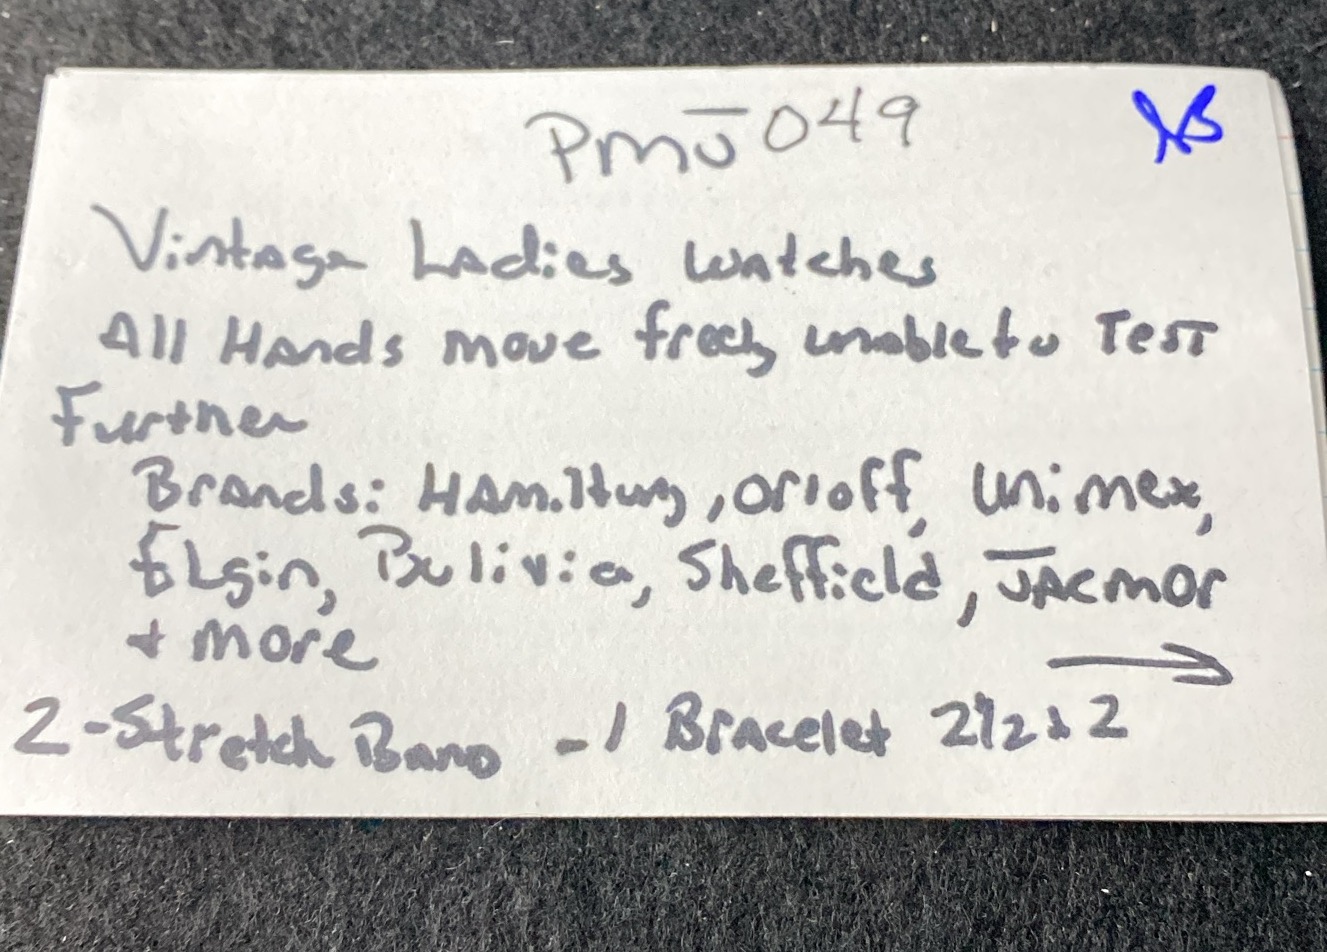 PMJ 049
Vintage Ladies watches
All Hands move freely unable to Test
Further
Brands: Hamiltung, Orloff, Unimex,
ELgin, Bulivia, Sheffield, JACMOr
+ more
2-Stretch Band - 1 Bracelet 2 1/2 x 2